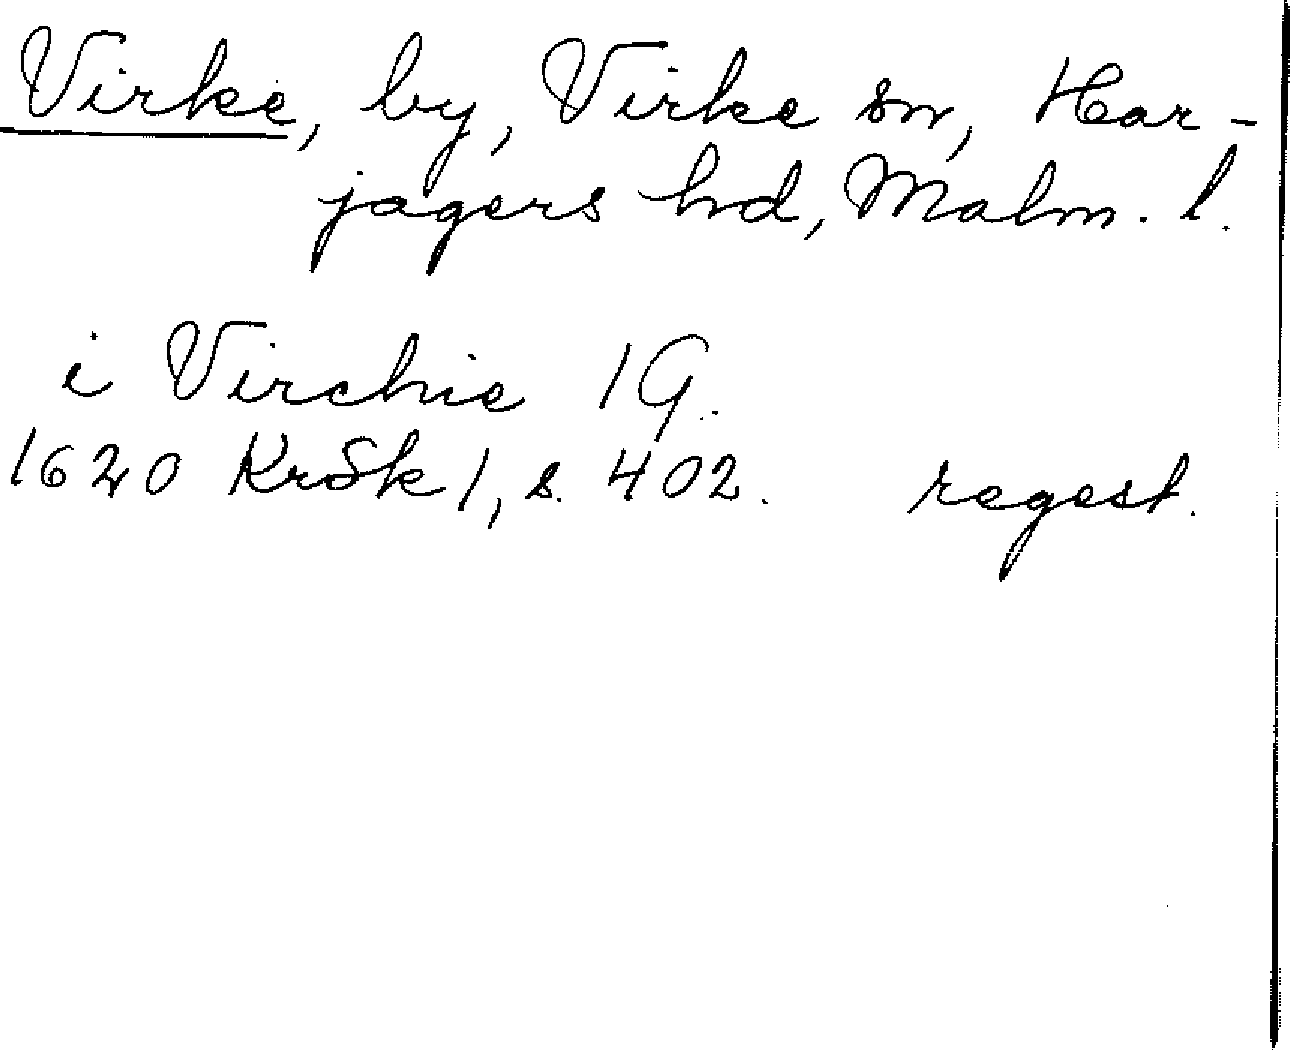 Virke, by, Virke sn, Har-
jagers hd, Malm. l.
i Virchie 1G.
1620 KrSk 1, s. 402. regest.